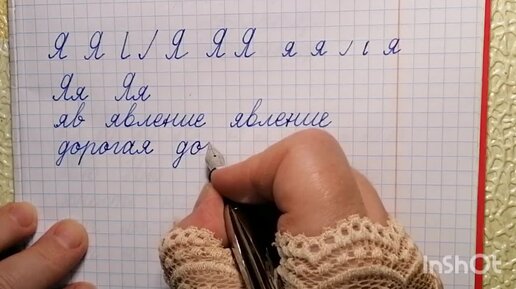 Я Я Я Я Я я я я
Яя Яя
яв явление явление
дорогая до
InShOt